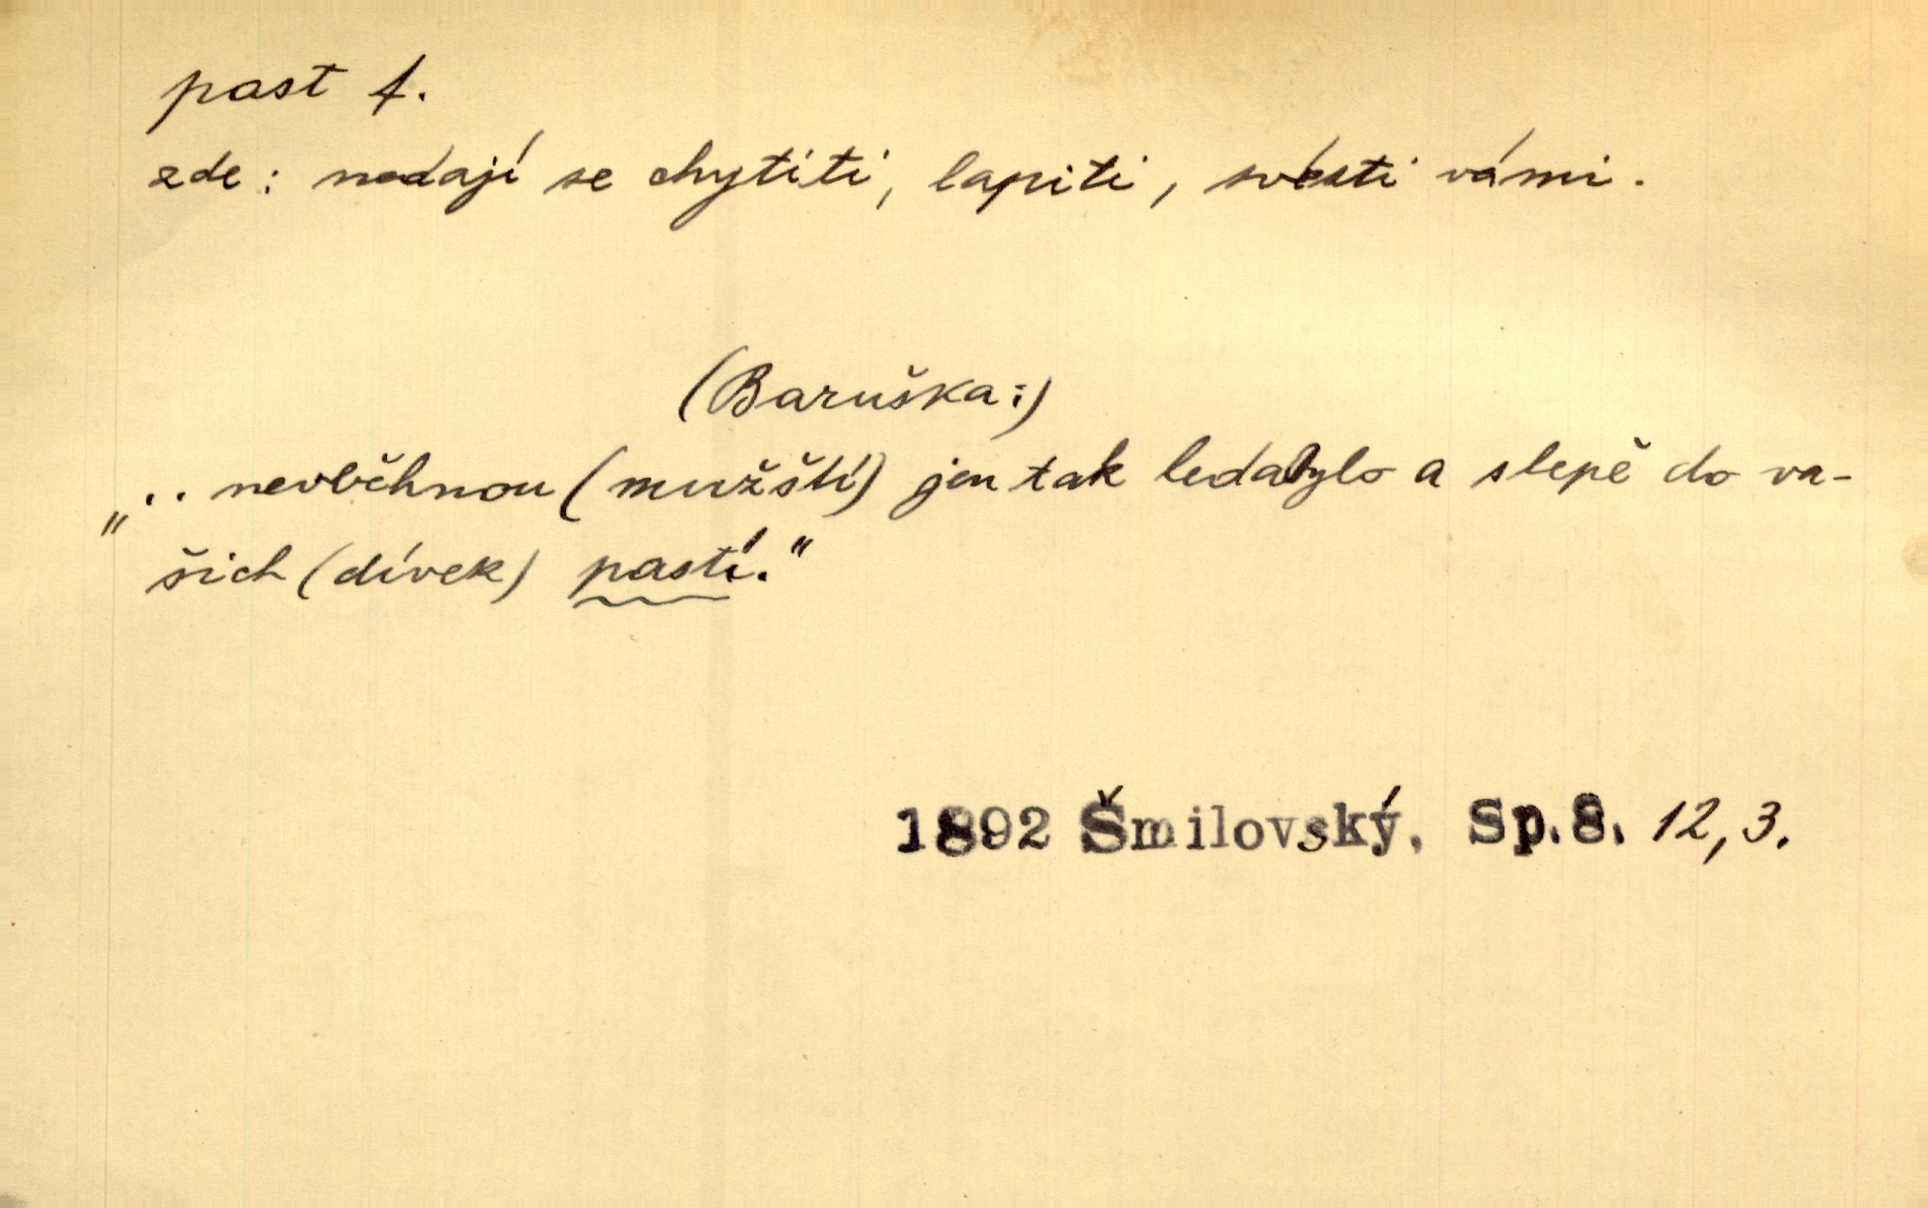 past f.
zde: nedají se chytiti, lapiti, svésti vámi.
(Baruška:)
„.. nevběhnou (mužští) jen tak ledabylo a slepě do va-
šich (dívek) pastí."
1892 Šmilovský, Sp.8. 12,3.